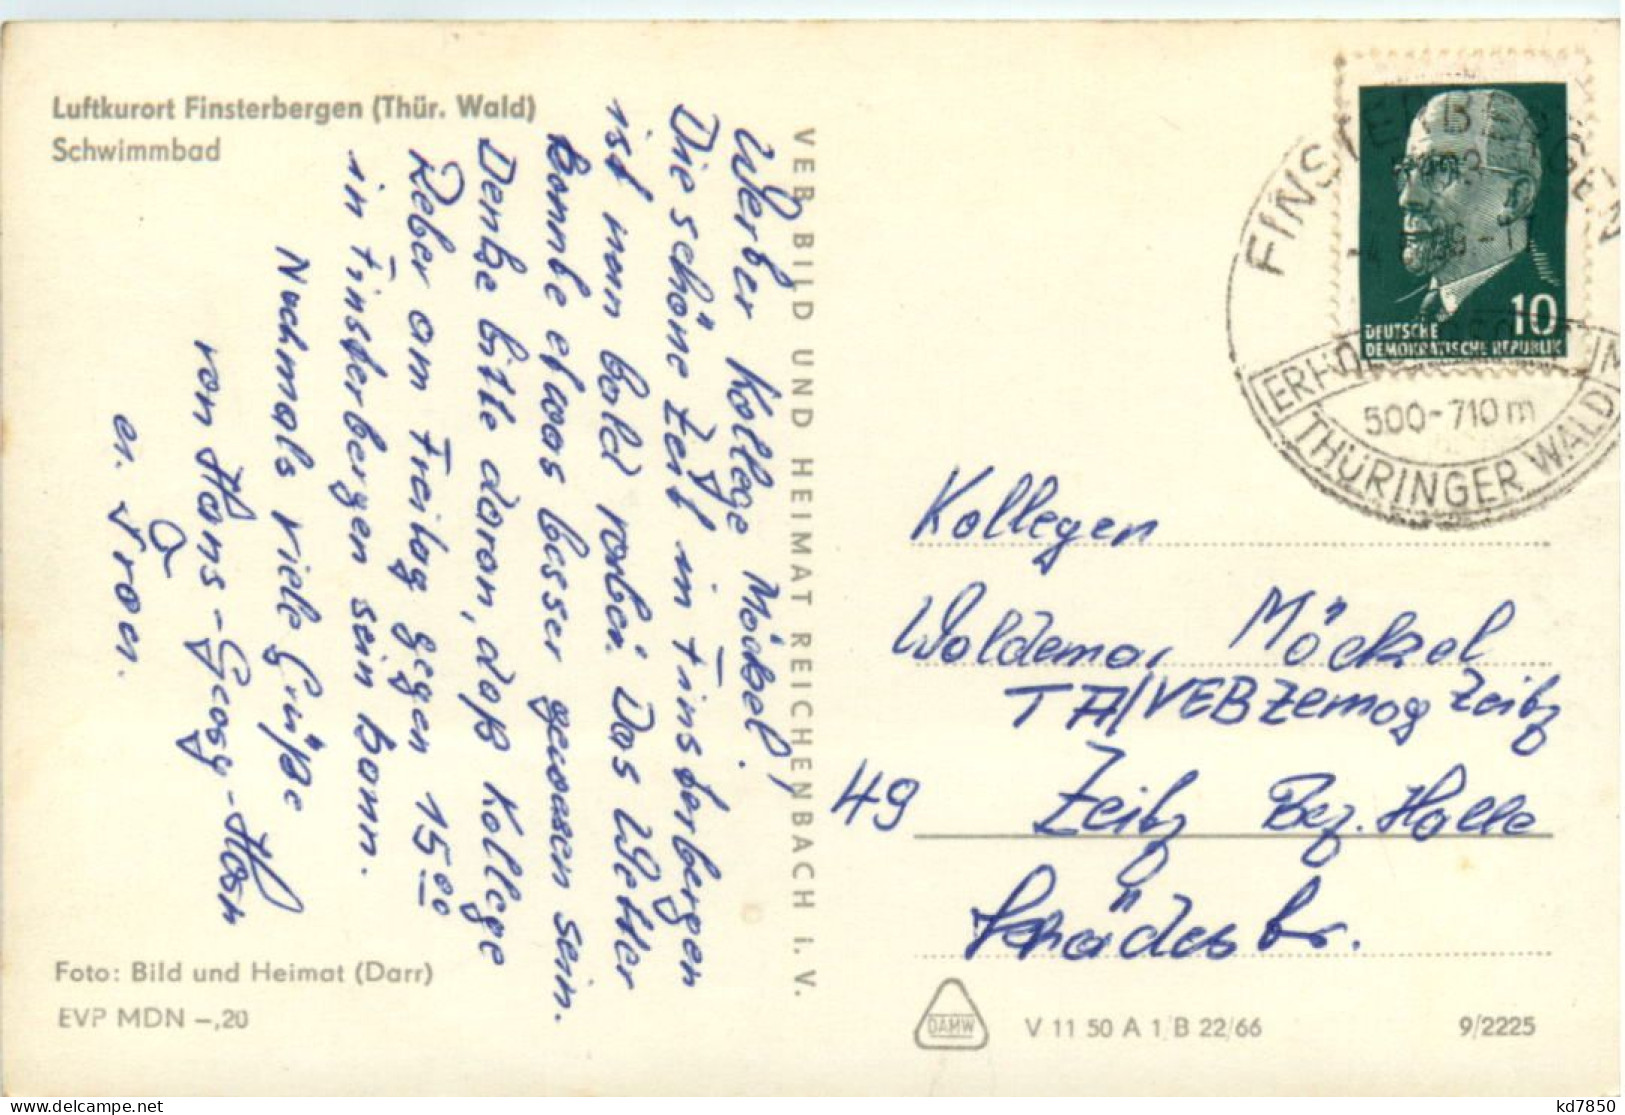 Luftkurort Finsterbergen (Thür. Wald)
Schwimmbad
Werter Kollege Möckel!
Die schöne Zeit in Finsterbergen
ist nun bald vorbei. Das Wetter
konnte etwas besser gewesen sein.
Denke bitte daran, daß Kollege
Reber am Freitag gegen 15 00
in Finsterbergen sein kann.
Nochmals viele Grüße
von Hans-Georg
Foto: Bild und Heimat (Darr)
EVP MDN –,20
VEB BILD UND HEIMAT REICHENBACH I. V.
FINSTERBERGEN
500-710 m
THÜRINGER WALD
10
DEUTSCHE
DEMOKRATISCHE REPUBLIK
Kollegen
Woldemar Möckel
TA/VEB Zemag Zeitz
49 Zeitz Bez. Halle
DAMW
V 11 50 A 1/B 22/66
9/2225
kd7850